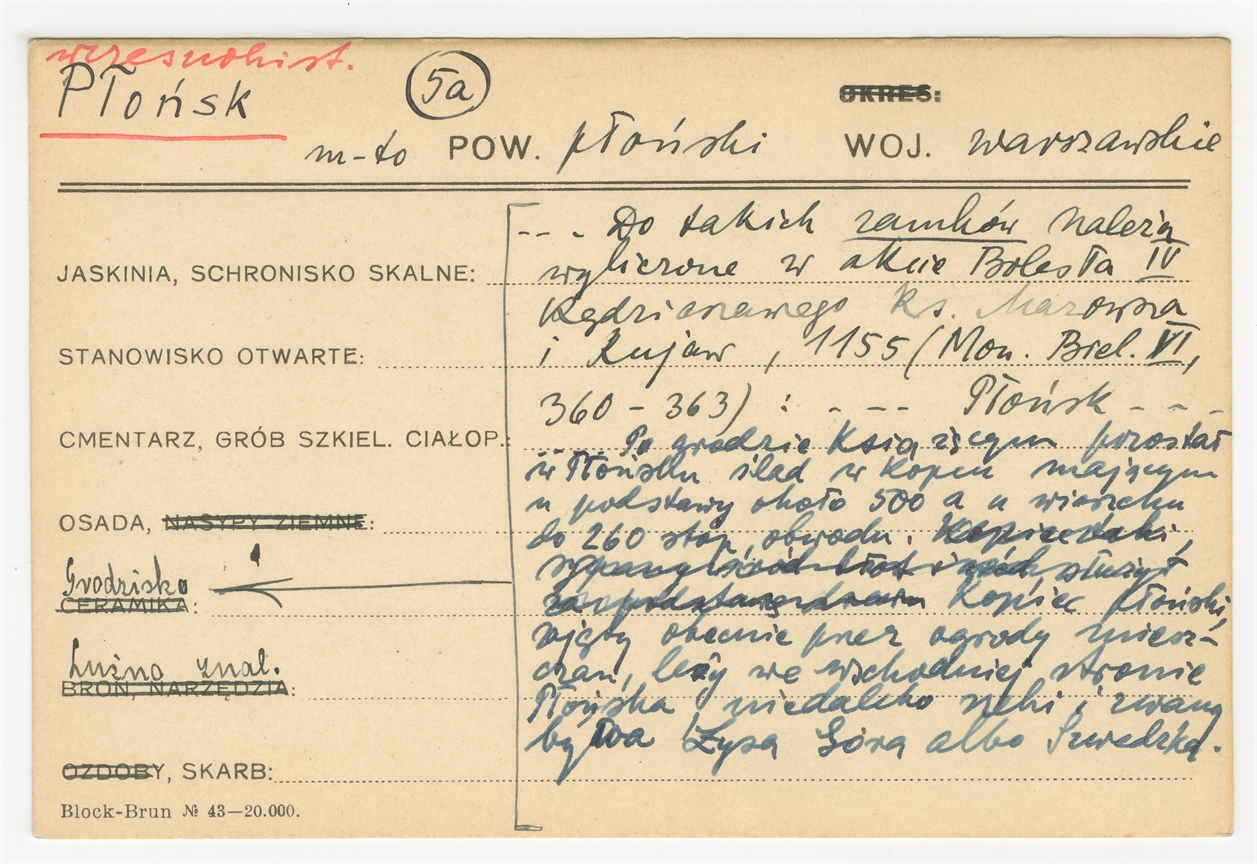 wczesnohist.
Płońsk
5a
OKRES:
m-to POW. płoński WOJ. warszawskie
--- Do takich zamków należą
JASKINIA, SCHRONISKO SKALNE:
wyliczone w akcie Bolesła IV
Kędzierzawego Ks. Mazowsza
STANOWISKO OTWARTE:
i Kujaw, 1155 (Mon. Biel. VI,
360 - 363) : - - - Płońsk - - -
CMENTARZ, GRÓB SZKIEL. CIAŁOP.:
Po grodzie książęcym pozostał
w Płońsku ślad w kopcu mającym
u podstawy około 500 a u wierzchu
OSADA, NASYPY ZIEMNE:
do 260 stóp obwodu. Kopiec taki,
sypany wśród błot i wód służył
Grodzisko
CERAMIKA:
za podstawę Kopiec płoński,
zajęty obecnie przez ogrody miesz-
Luźno znal.
czan, leży we wschodniej stronie
BROŃ, NARZĘDZIA:
Płońska niedaleko rzeki i zwany
bywa Łysą Górą albo Szwedzką.
OZDOBY, SKARB:
Block-Brun № 43—20.000.